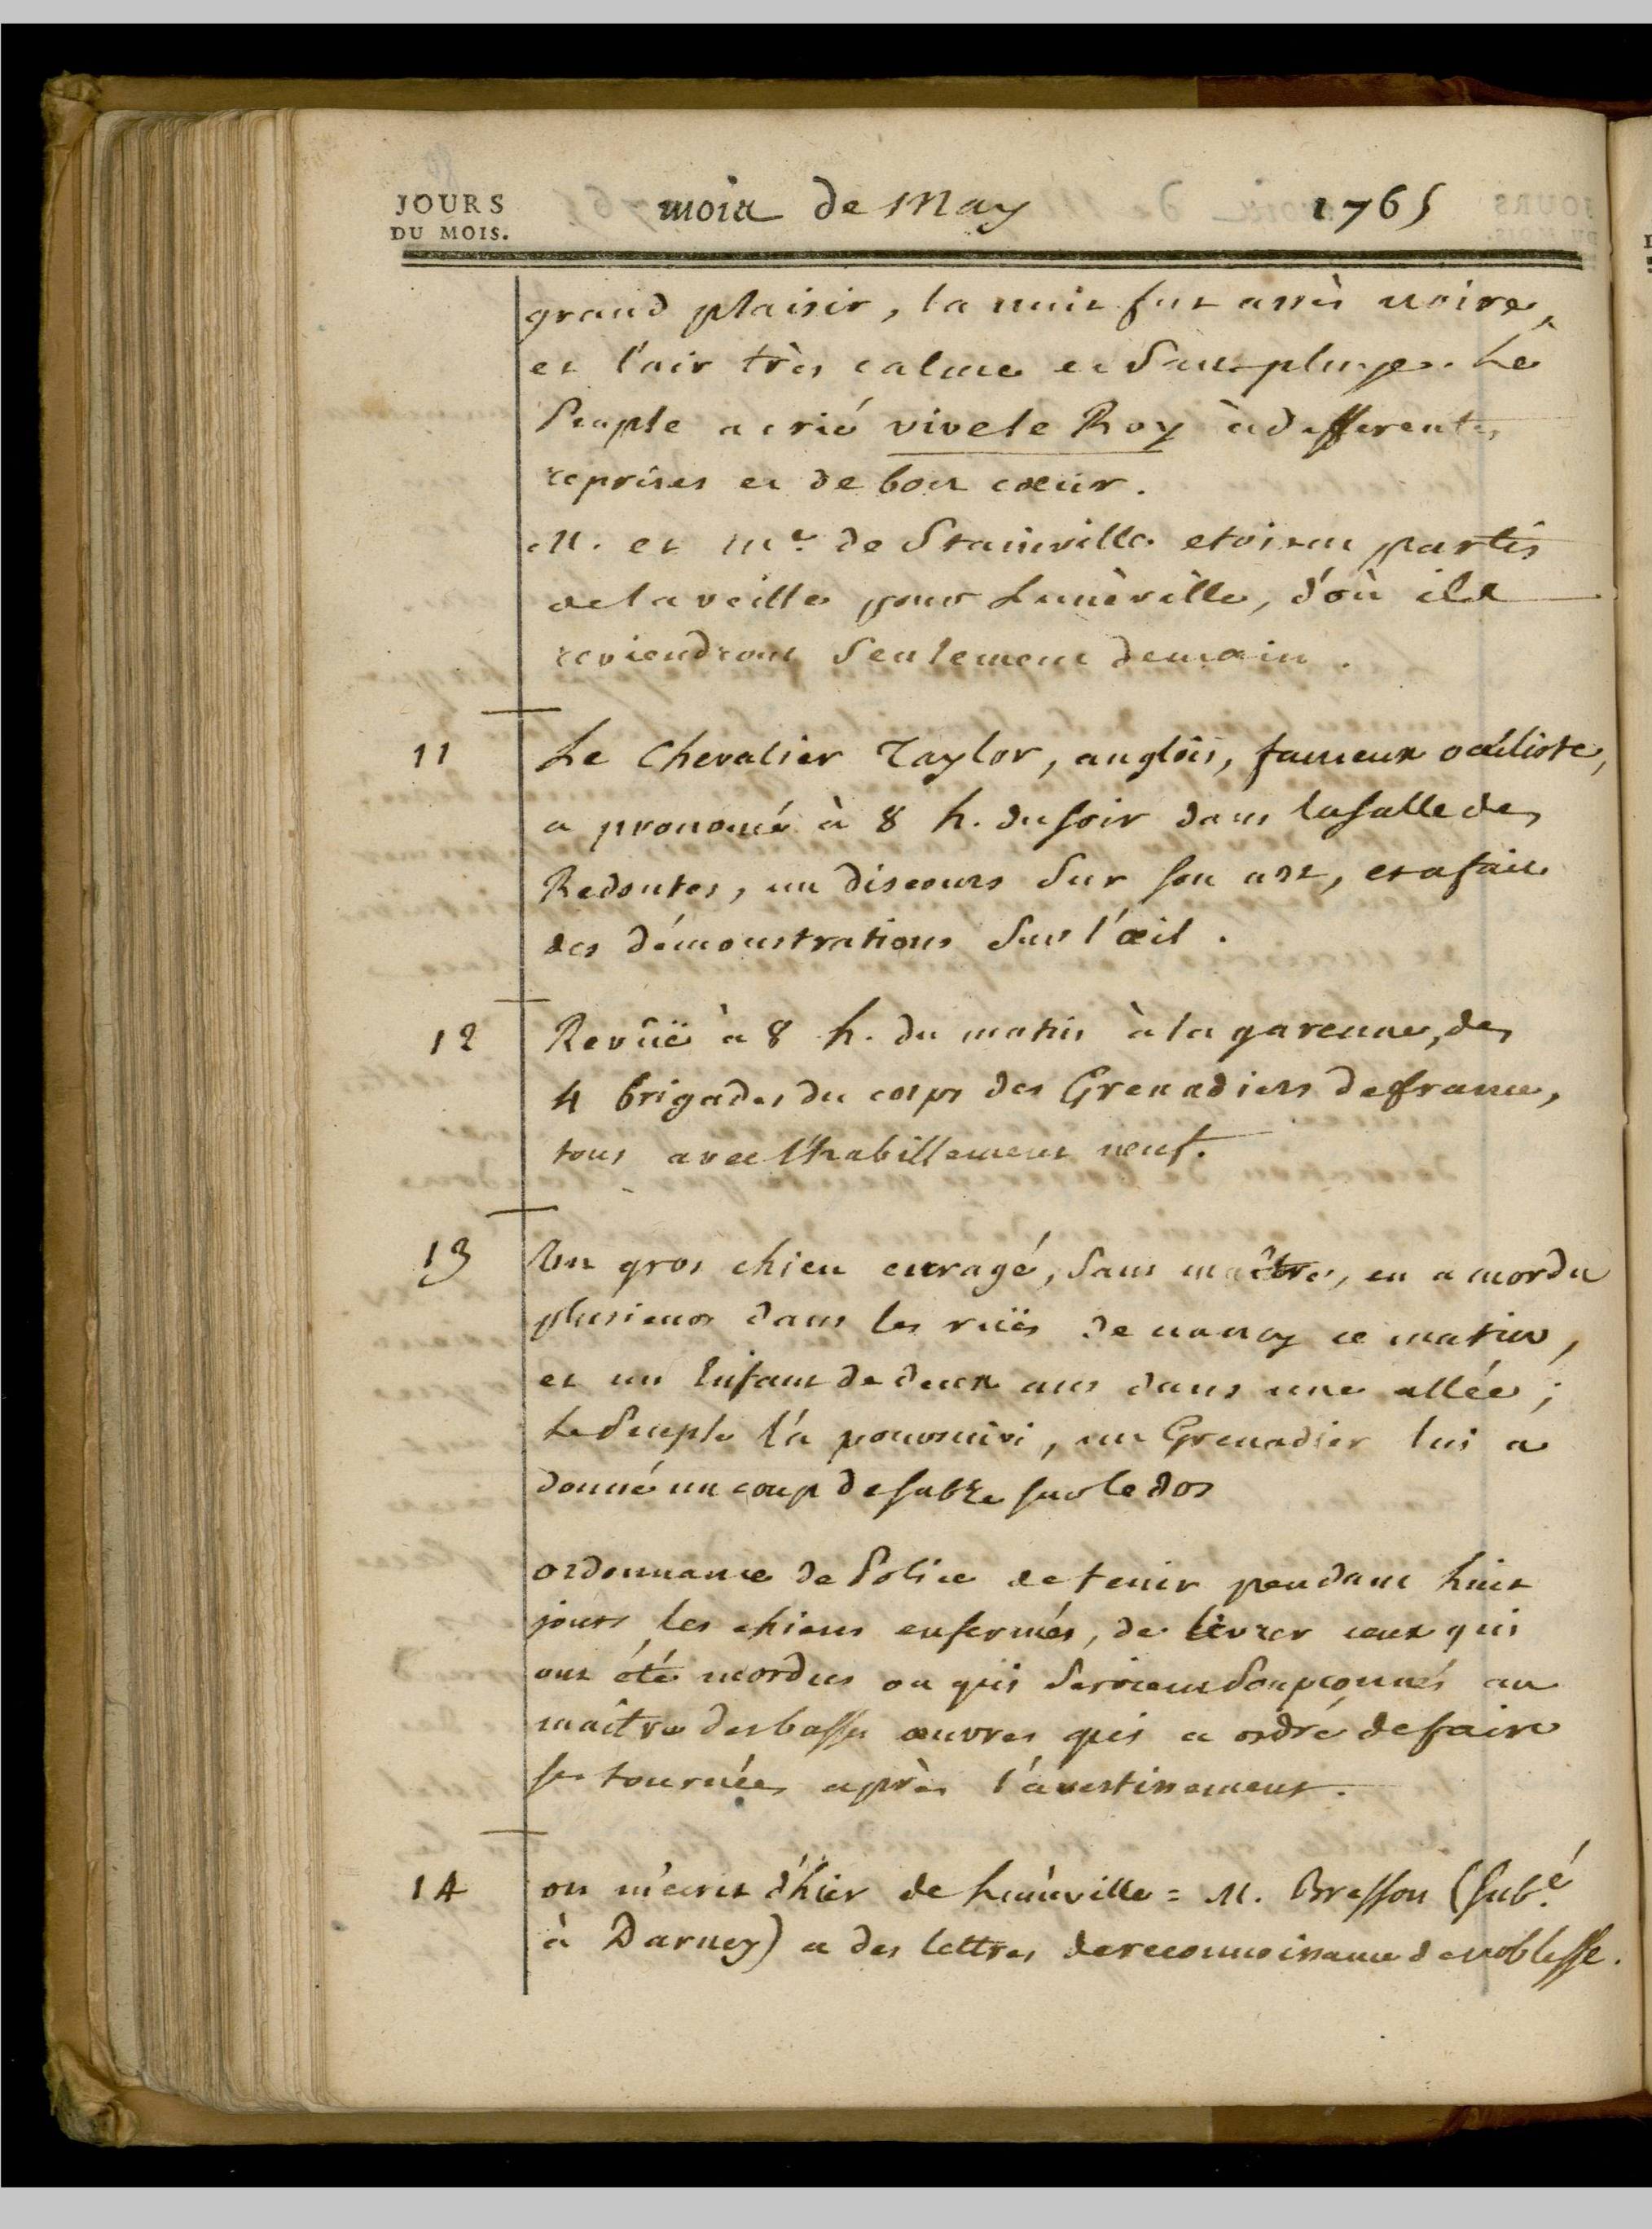 JOURS
DU MOIS.
mois de May 1765
grand plaisir, la nuit fut assès noire,
et l'air très calme et sans pluye. Le
Peuple a crié vive le Roy à differentes
reprises et de bon cœur.
M. et Me de Stainville etoient partis
de la veille pour Lunèville, d'où ils
reviendront seulement demain.
11 Le Chevalier Taylor, anglois, fameux oculiste,
a prononcé à 8 h. du soir dans la salle des
Redoutes, un discours sur son art, et a fait
des démonstrations sur l'œil.
12 Revüë à 8 h. du matin à la garenne, des
4 brigades du corps des Grenadiers de france,
tous avec l'habillement neuf.
13 Un gros chien enragé, sans maître, en a mordu
plusieurs dans les rües de nancy ce matin,
et un Enfant de deux ans dans une allée;
Le Peuple l'a poursuivi, un Grenadier lui a
donné un coup de sabre sur le dos
ordonnance de Police de tenir pendant huit
jours les chiens enfermés, de livrer ceux qui
ont été mordus ou qui seroient soupçonnés au
maître des basses œuvres qui a ordre de faire
ses tournées après l'avertissement.
14 on m'ecrit d'hier de Lunéville = M. Bresson (subé
à Darney) a des lettres de reconnoissance de noblesse.